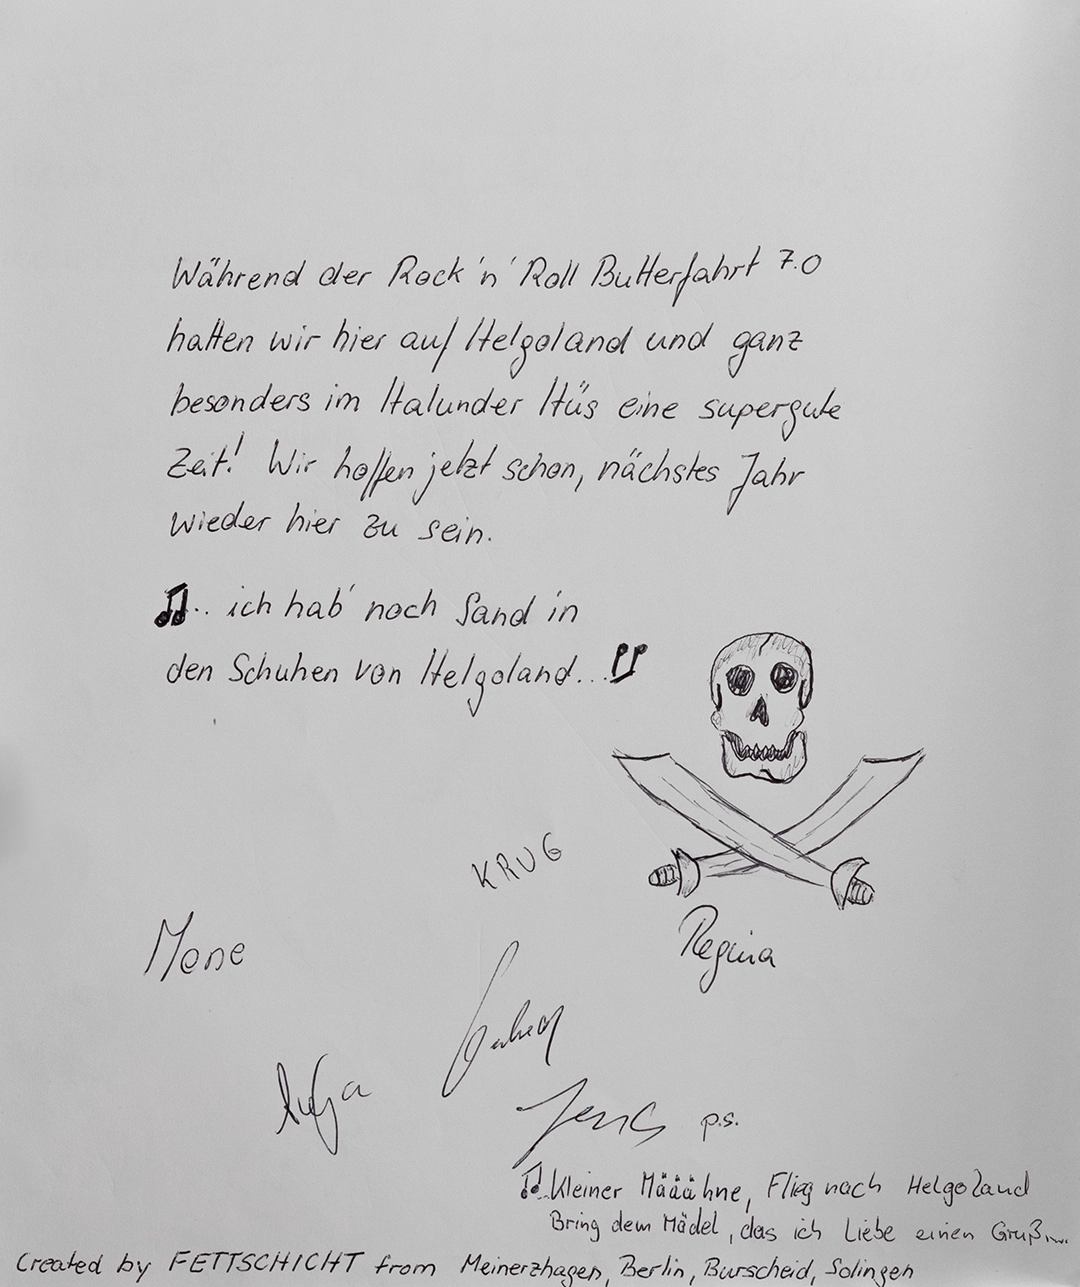 Während der Rock 'n' Roll Butterfahrt 7.0
hatten wir hier auf Helgoland und ganz
besonders im Halunder Hüs eine supergute
Zeit! Wir hoffen jetzt schon, nächstes Jahr
wieder hier zu sein.
♫.. ich hab' noch Sand in
den Schuhen von Helgoland... ♫
KRUG
Mone
Regina
Jens p.s.
♫..Kleiner Määähne, Flieg nach Helgoland
Bring dem Mädel, das ich Liebe einen Gruß....
Created by FETTSCHICHT from Meinerzhagen, Berlin, Burscheid, Solingen